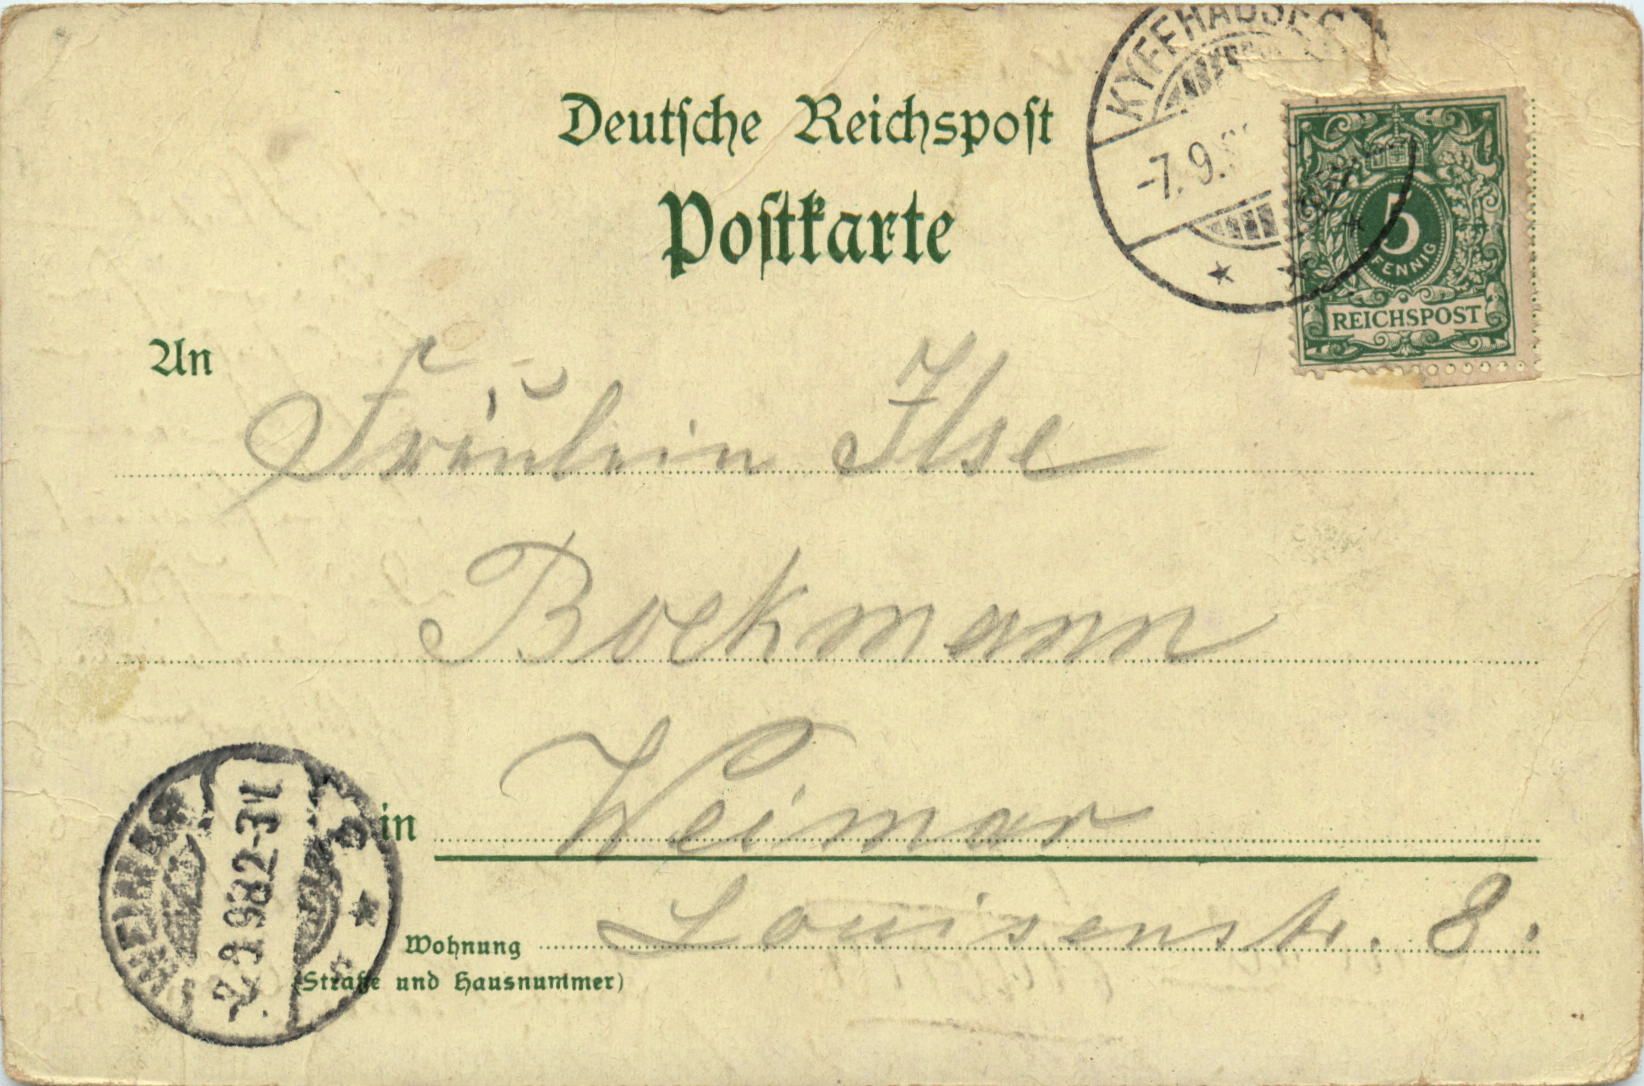 KYFFHÄUSER
-7.9.
5
PFENNIG
REICHSPOST
Deutsche Reichspost
Postkarte
An
Fräulein Ilse
Bockmann
in Weimar
Wohnung Louisenstr. 8.
(Straße und Hausnummer)
WEIMAR
7.9.98 2-3N